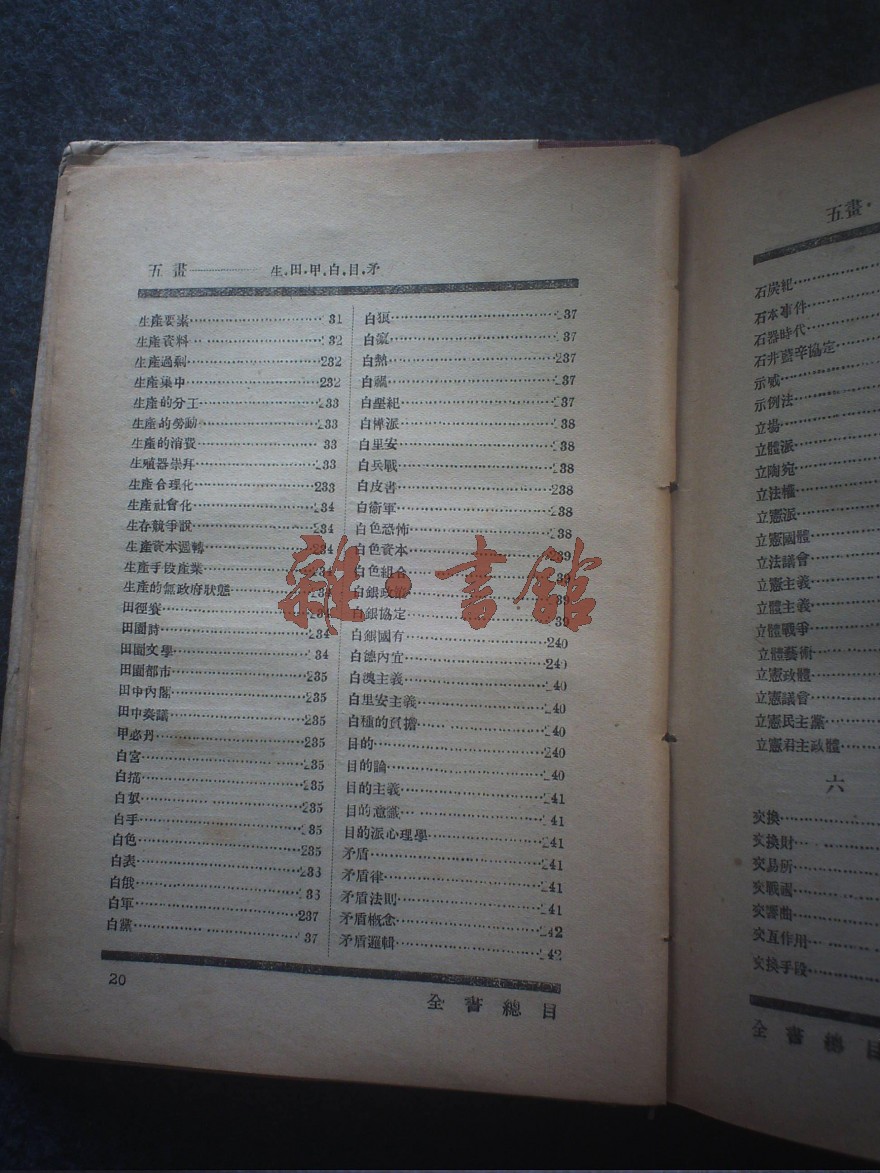 五畫 生.田.甲.白.目.矛
生產要素 31
生產資料 32
生產過剩 232
生產集中 232
生產的分工 233
生產的勞動 33
生產的消費 33
生殖器崇拜 33
生產合理化 233
生產社會化 34
生存競爭說 234
生產資本週轉 234
生產手段產業 34
生產的無政府狀態 34
田徑賽 34
田園詩 34
田園文學 34
田園都市 235
田中內閣 235
田中奏議 235
甲必丹 235
白宮 35
白描 35
白奴 35
白手 35
白色 235
白表 36
白俄 36
白軍 237
白黨 37
白狼 37
白熱 237
白禍 37
白堊紀 37
白樺派 38
白里安 38
白兵戰 38
白皮書 238
白衛軍 38
白色恐怖 38
白色資本 239
白色組合 39
白銀政府 39
白銀協定 39
白銀國有 240
白德內宜 240
白澳主義 40
白里安主義 40
白種的負擔 40
目的 240
目的論 40
目的主義 41
目的意識 41
目的派心理學 241
矛盾 41
矛盾律 41
矛盾法則 41
矛盾概念 42
矛盾邏輯 42
20
全書總目
五畫.
石炭紀
石本事件
石器時代
石井藍辛協定
示威
示例法
立場
立體派
立陶宛
立法權
立憲派
立憲國體
立法議會
立憲主義
立體主義
立體戰爭
立體藝術
立憲政體
立憲議會
立憲民主黨
立憲君主政體
六
交換
交換財
交易所
交戰國
交響曲
交互作用
交換手段
全書總目
雜·書館